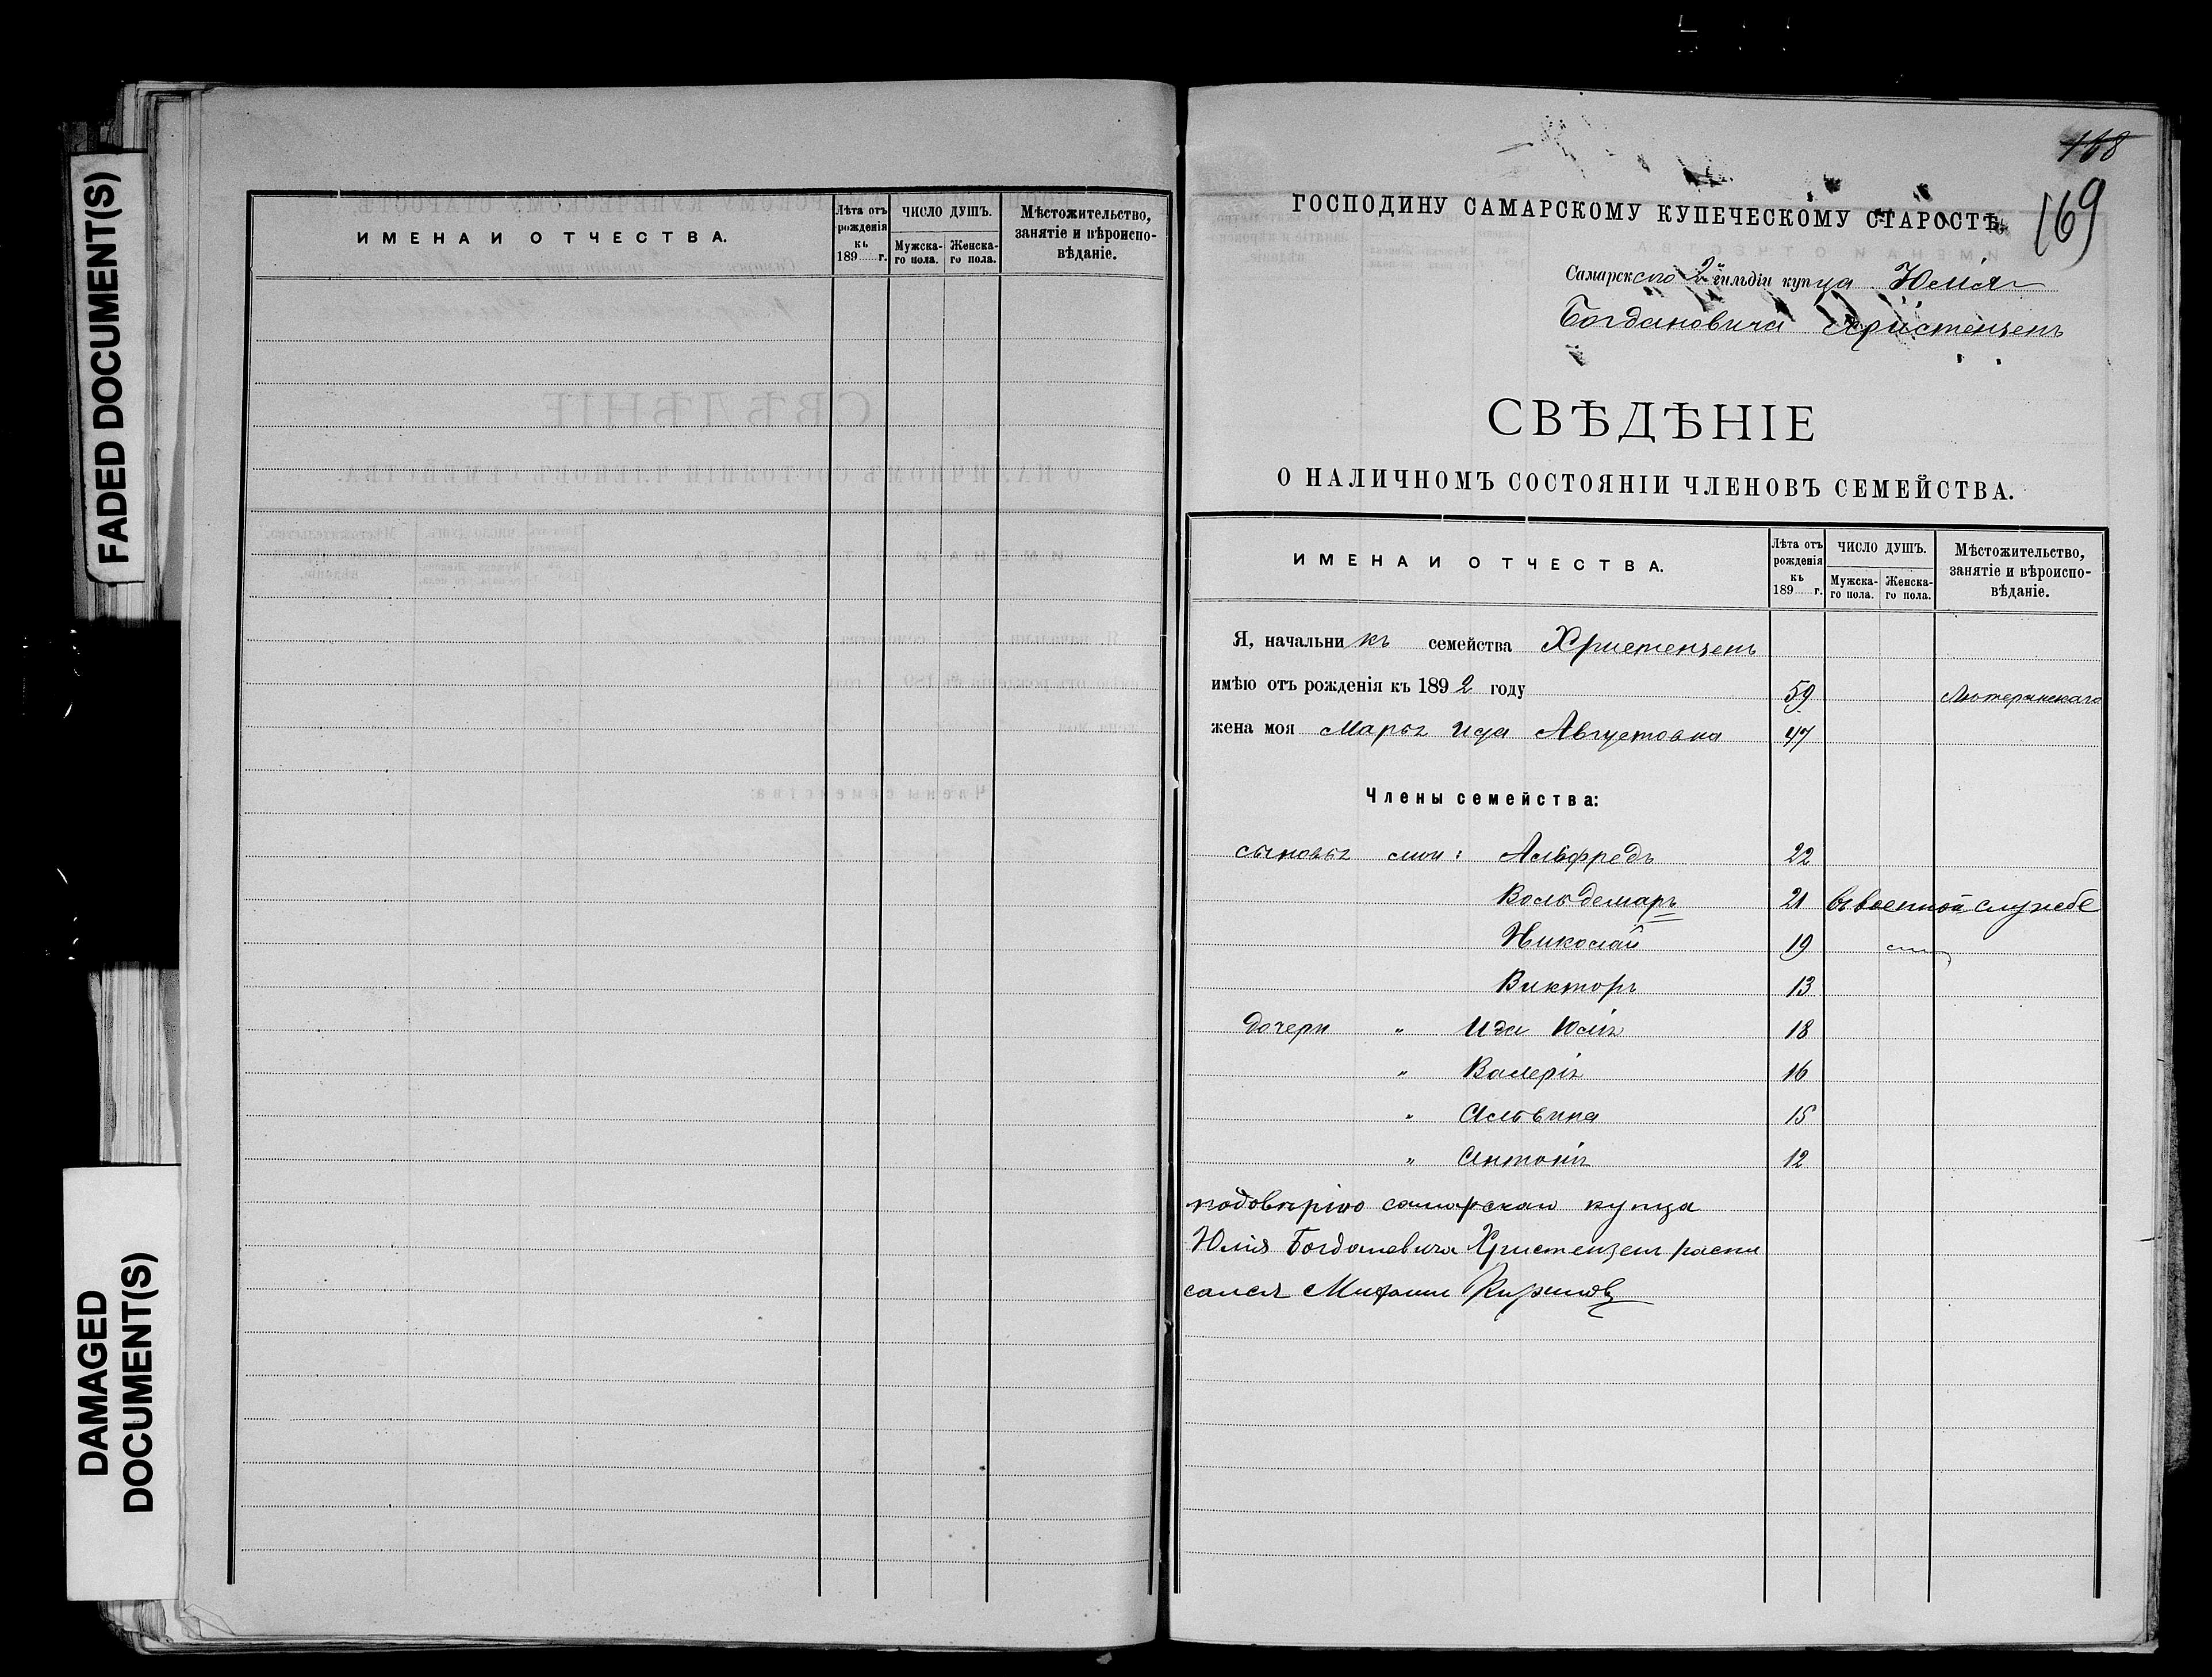 FADED DOCUMENT(S)
DAMAGED
DOCUMENT(S)
ИМЕНА И ОТЧЕСТВА.
Лѣта отъ рожденія къ 189 г.
ЧИСЛО ДУШЪ.
Мужска-го пола.
Женска-го пола.
Мѣстожительство, занятіе и вѣроиспо-вѣданіе.
168
169
ГОСПОДИНУ САМАРСКОМУ КУПЕЧЕСКОМУ СТАРОСТѢ
Самарскаго 2й гильдіи купца Юлія
Богдановича Христензенъ
СВѢДѢНІЕ
О НАЛИЧНОМЪ СОСТОЯНІИ ЧЛЕНОВЪ СЕМЕЙСТВА.
ИМЕНА И ОТЧЕСТВА.
Лѣта отъ рожденія къ 189 г.
ЧИСЛО ДУШЪ.
Мужска-го пола.
Женска-го пола.
Мѣстожительство, занятіе и вѣроиспо-вѣданіе.
Я, начальникъ семейства Христензенъ
имѣю отъ рожденія къ 1892 году 59 Лютеранскаго
жена моя Марья Ида Августовна 47
Члены семейства:
сыновья мои: Альфредъ 22
Вольдемаръ 21 въ военной службе
Николай 19
Викторъ 13
дочери " Ида Юлія 18
" Валерія 16
" Альвина 15
" Антонія 12
подовѣрію самарскаго купца
Юлія Богдановича Христензенъ распи
сался Михаилъ